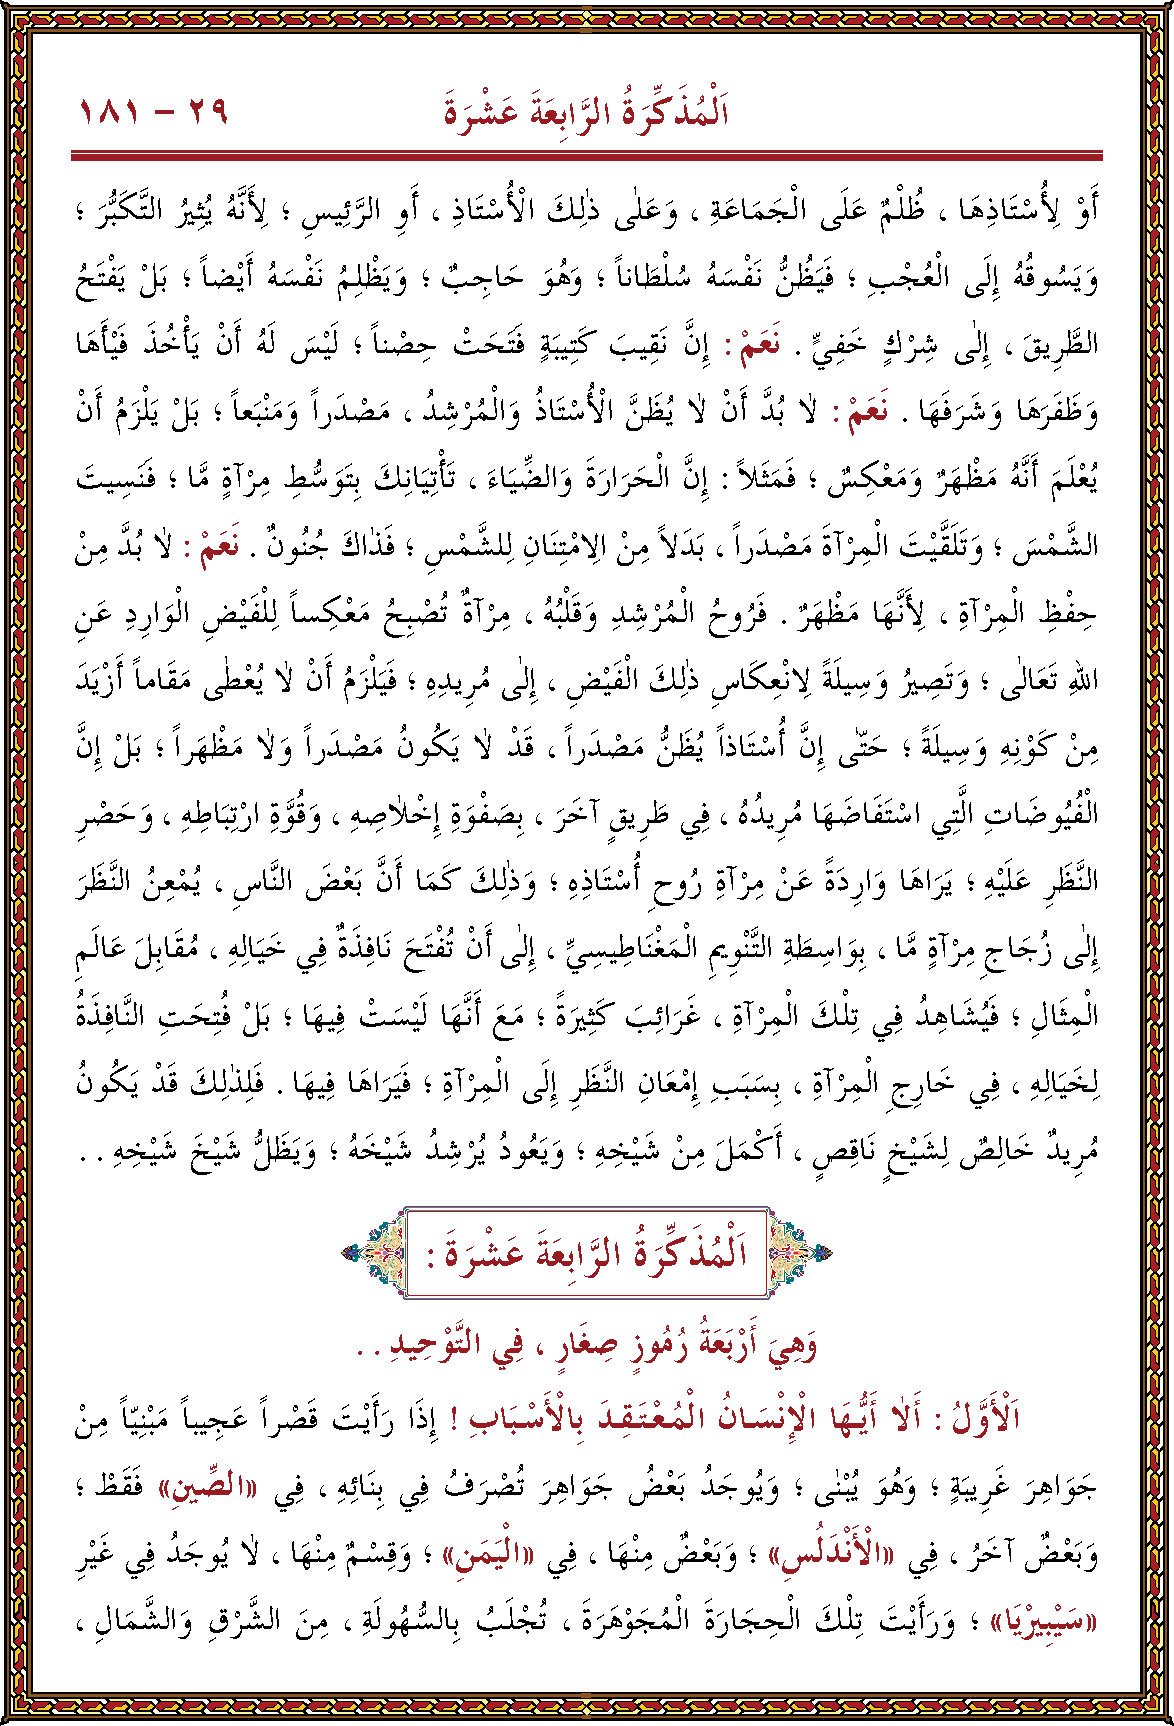 اَلْمُذَكِّرَةُ الرَّابِعَةَ عَشْرَةَ ٢٩ – ١٨١
أَوْ لِأُسْتَاذِهَا ، ظُلْمٌ عَلَى الْجَمَاعَةِ ، وَعَلٰى ذٰلِكَ الْأُسْتَاذِ ، أَوِ الرَّئِيسِ ؛ لِأَنَّهُ يُثِيرُ التَّكَبُّرَ ؛
وَيَسُوقُهُ إِلَى الْعُجْبِ ؛ فَيَظُنُّ نَفْسَهُ سُلْطَاناً ؛ وَهُوَ حَاجِبٌ ؛ وَيَظْلِمُ نَفْسَهُ أَيْضاً ؛ بَلْ يَفْتَحُ
الطَّرِيقَ ، إِلٰى شِرْكٍ خَفِيٍّ . نَعَمْ : إِنَّ نَقِيبَ كَتِيبَةٍ فَتَحَتْ حِصْناً ؛ لَيْسَ لَهُ أَنْ يَأْخُذَ فَيْأَهَا
وَظَفَرَهَا وَشَرَفَهَا . نَعَمْ : لَا بُدَّ أَنْ لَا يُظَنَّ الْأُسْتَاذُ وَالْمُرْشِدُ ، مَصْدَراً وَمَنْبَعاً ؛ بَلْ يَلْزَمُ أَنْ
يُعْلَمَ أَنَّهُ مَظْهَرٌ وَمَعْكِسٌ ؛ فَمَثَلاً : إِنَّ الْحَرَارَةَ وَالضِّيَاءَ ، تَأْتِيَانِكَ بِتَوَسُّطِ مِرْآةٍ مَّا ؛ فَنَسِيتَ
الشَّمْسَ ؛ وَتَلَقَّيْتَ الْمِرْآةَ مَصْدَراً ، بَدَلاً مِنْ الِامْتِنَانِ لِلشَّمْسِ ؛ فَذٰاكَ جُنُونٌ . نَعَمْ : لَا بُدَّ مِنْ
حِفْظِ الْمِرْآةِ ، لِأَنَّهَا مَظْهَرٌ . فَرُوحُ الْمُرْشِدِ وَقَلْبُهُ ، مِرْآةٌ تُصْبِحُ مَعْكِساً لِلْفَيْضِ الْوَارِدِ عَنِ
اللهِ تَعَالٰى ؛ وَتَصِيرُ وَسِيلَةً لِانْعِكَاسِ ذٰلِكَ الْفَيْضِ ، إِلٰى مُرِيدِهِ ؛ فَيَلْزَمُ أَنْ لَا يُعْطٰى مَقَاماً أَزْيَدَ
مِنْ كَوْنِهِ وَسِيلَةً ؛ حَتّٰى إِنَّ أُسْتَاذاً يُظَنُّ مَصْدَراً ، قَدْ لَا يَكُونُ مَصْدَراً وَلَا مَظْهَراً ؛ بَلْ إِنَّ
الْفُيُوضَاتِ الَّتِي اسْتَفَاضَهَا مُرِيدُهُ ، فِي طَرِيقٍ آخَرَ ، بِصَفْوَةِ إِخْلَاصِهِ ، وَقُوَّةِ ارْتِبَاطِهِ ، وَحَصْرِ
النَّظَرِ عَلَيْهِ ؛ يَرَاهَا وَارِدَةً عَنْ مِرْآةِ رُوحِ أُسْتَاذِهِ ؛ وَذٰلِكَ كَمَا أَنَّ بَعْضَ النَّاسِ ، يُمْعِنُ النَّظَرَ
إِلٰى زُجَاجِ مِرْآةٍ مَّا ، بِوَاسِطَةِ التَّنْوِيمِ الْمَغْنَاطِيسِيِّ ، إِلٰى أَنْ تُفْتَحَ نَافِذَةٌ فِي خَيَالِهِ ، مُقَابِلَ عَالَمِ
الْمِثَالِ ؛ فَيُشَاهِدُ فِي تِلْكَ الْمِرْآةِ ، غَرَائِبَ كَثِيرَةً ؛ مَعَ أَنَّهَا لَيْسَتْ فِيهَا ؛ بَلْ فُتِحَتِ النَّافِذَةُ
لِخَيَالِهِ ، فِي خَارِجِ الْمِرْآةِ ، بِسَبَبِ إِمْعَانِ النَّظَرِ إِلَى الْمِرْآةِ ؛ فَيَرَاهَا فِيهَا . فَلِذٰلِكَ قَدْ يَكُونُ
مُرِيدٌ خَالِصٌ لِشَيْخٍ نَاقِصٍ ، أَكْمَلَ مِنْ شَيْخِهِ ؛ وَيَعُودُ يُرْشِدُ شَيْخَهُ ؛ وَيَظَلُّ شَيْخَ شَيْخِهِ . .
اَلْمُذَكِّرَةُ الرَّابِعَةَ عَشْرَةَ :
وَهِيَ أَرْبَعَةُ رُمُوزٍ صِغَارٍ ، فِي التَّوْحِيدِ . .
اَلْأَوَّلُ : أَلَا أَيُّهَا الْإِنْسَانُ الْمُعْتَقِدَ بِالْأَسْبَابِ ! إِذَا رَأَيْتَ قَصْراً عَجِيباً مَبْنِيّاً مِنْ
جَوَاهِرَ غَرِيبَةٍ ؛ وَهُوَ يُبْنٰى ؛ وَيُوجَدُ بَعْضُ جَوَاهِرَ تُصْرَفُ فِي بِنَائِهِ ، فِي «الصِّينِ» فَقَطْ ؛
وَبَعْضٌ آخَرُ ، فِي «الْأَنْدَلُسِ» ؛ وَبَعْضٌ مِنْهَا ، فِي «الْيَمَنِ» ؛ وَقِسْمٌ مِنْهَا ، لَا يُوجَدُ فِي غَيْرِ
«سَيْبِيْرْيَا» ؛ وَرَأَيْتَ تِلْكَ الْحِجَارَةَ الْمُجَوْهَرَةَ ، تُجْلَبُ بِالسُّهُولَةِ ، مِنَ الشَّرْقِ وَالشَّمَالِ ،